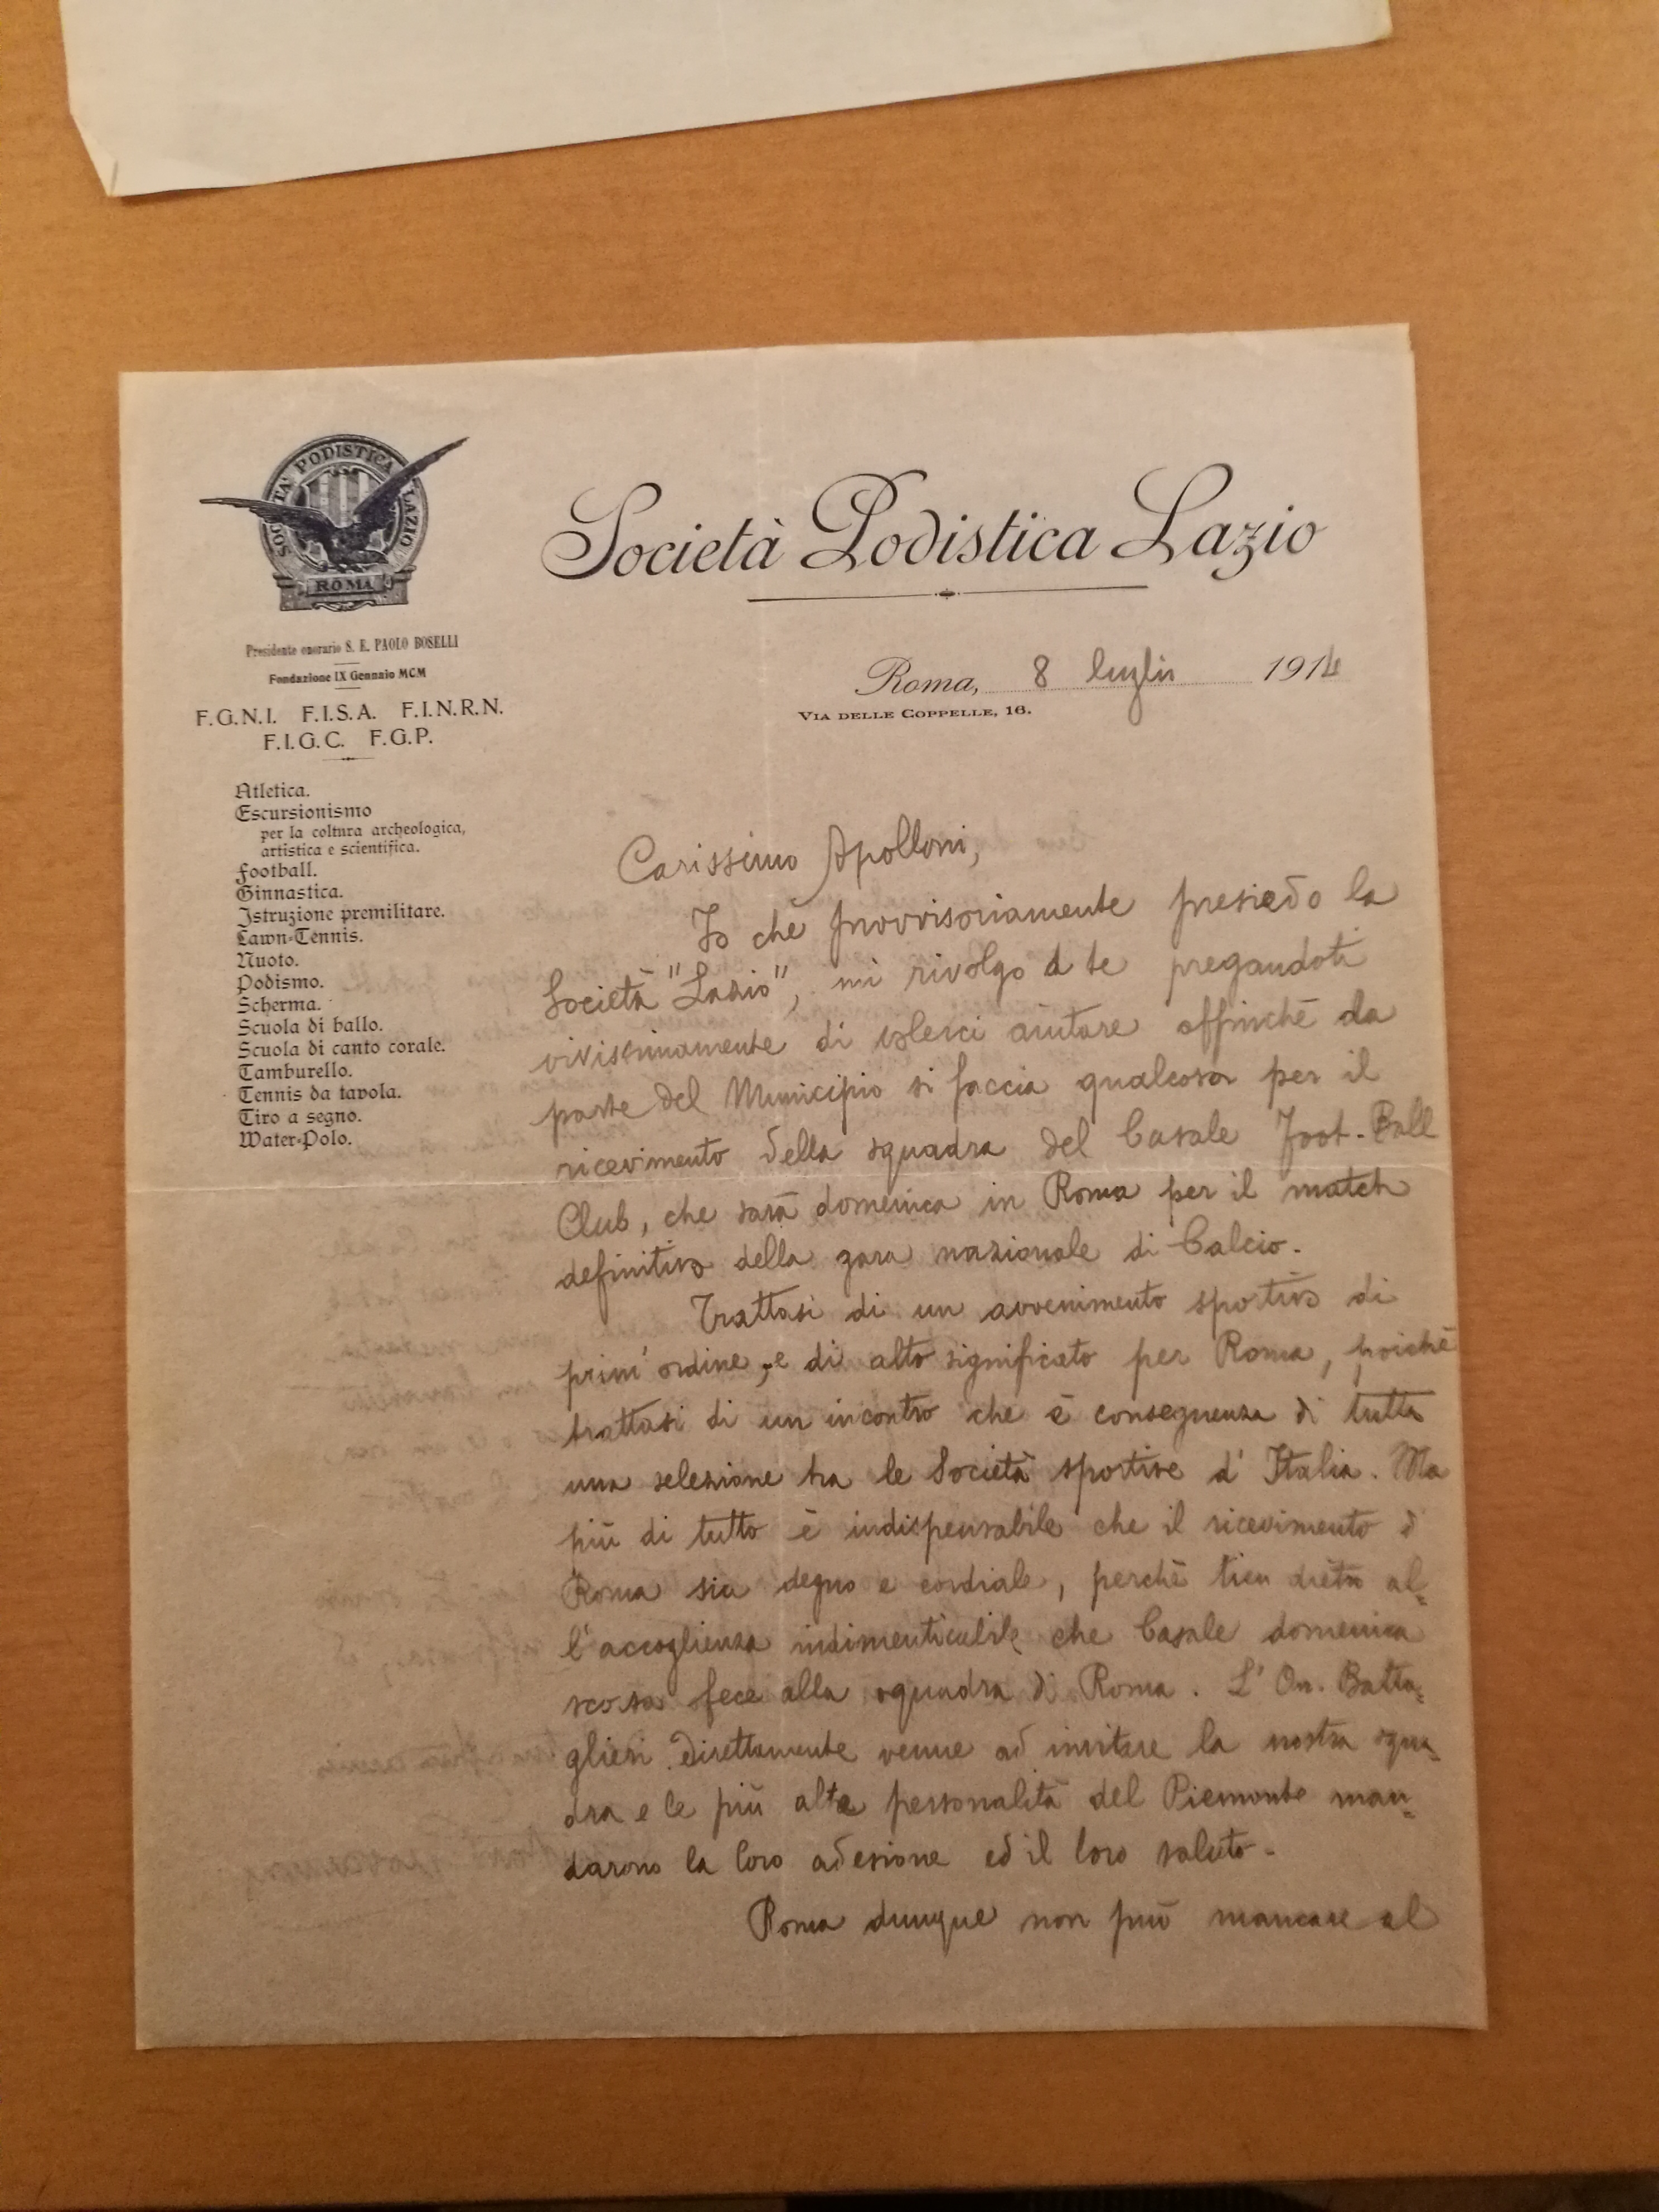 SOCIETÀ PODISTICA LAZIO
ROMA
Presidente onorario S. E. PAOLO BOSELLI
Fondazione IX Gennaio MCM
F.G.N.I. F.I.S.A. F.I.N.R.N.
F.I.G.C. F.G.P.
Atletica.
Escursionismo
per la coltura archeologica,
artistica e scientifica.
Football.
Ginnastica.
Istruzione premilitare.
Lawn-Tennis.
Nuoto.
Podismo.
Scherma.
Scuola di ballo.
Scuola di canto corale.
Tamburello.
Tennis da tavola.
Tiro a segno.
Water-Polo.
Società Podistica Lazio
Roma, 8 luglio 1914
VIA DELLE COPPELLE, 16.
Carissimo Apolloni,
Io che provvisoriamente presiedo la
Società "Lazio", mi rivolgo a te pregandoti
vivissimamente di volerci aiutare affinchè da
parte del Municipio si faccia qualcosa per il
ricevimento della squadra del Casale Foot-Ball
Club, che sarà domenica in Roma per il match
definitivo della gara nazionale di Calcio.
Trattasi di un avvenimento sportivo di
prim'ordine, e di alto significato per Roma, poichè
trattasi di un incontro che è conseguenza di tutta
una selezione tra le Società sportive d'Italia. Ma
più di tutto è indispensabile che il ricevimento di
Roma sia degno e cordiale, perchè tien dietro al-
l'accoglienza indimenticabile che Casale domenica
scorsa fece alla squadra di Roma. L'On. Batta-
glieri direttamente venne ad invitare la nostra squa-
dra e le più alte personalità del Piemonte man-
darono la loro adesione ed il loro saluto.
Roma dunque non può mancare al